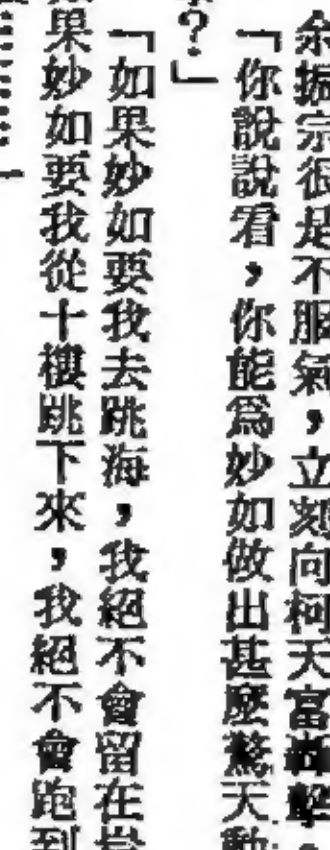 余振宗很是不服氣，立刻向柯天富
「你說說看，你能爲妙如做出甚麼驚天動
？」
「如果妙如要我去跳海，我絕不會留在岸
果妙如要我從十樓跳下來，我絕不會跑到